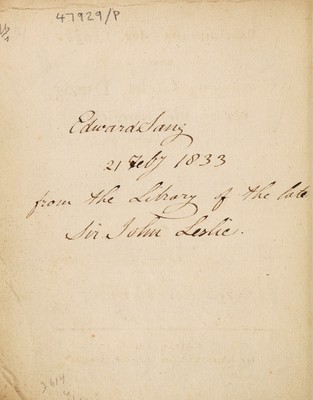 47929/P
Edward Sang
21 Feby 1833
from the Library of the late
Sir John Leslie.